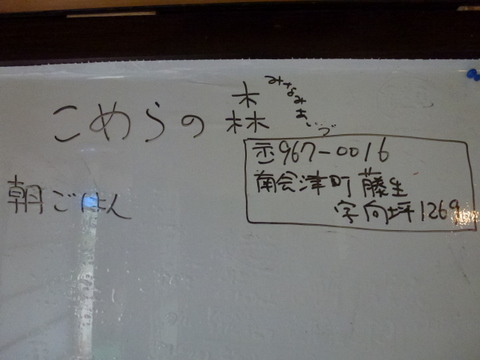 こめらの森
みなみあいづ
〒967-0016
南会津町 藤生
字向坪1269
朝ごはん